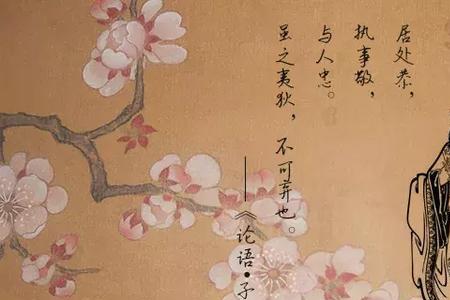 居处恭，
执事敬，
与人忠。
虽之夷狄，不可弃也。
——《论语·子